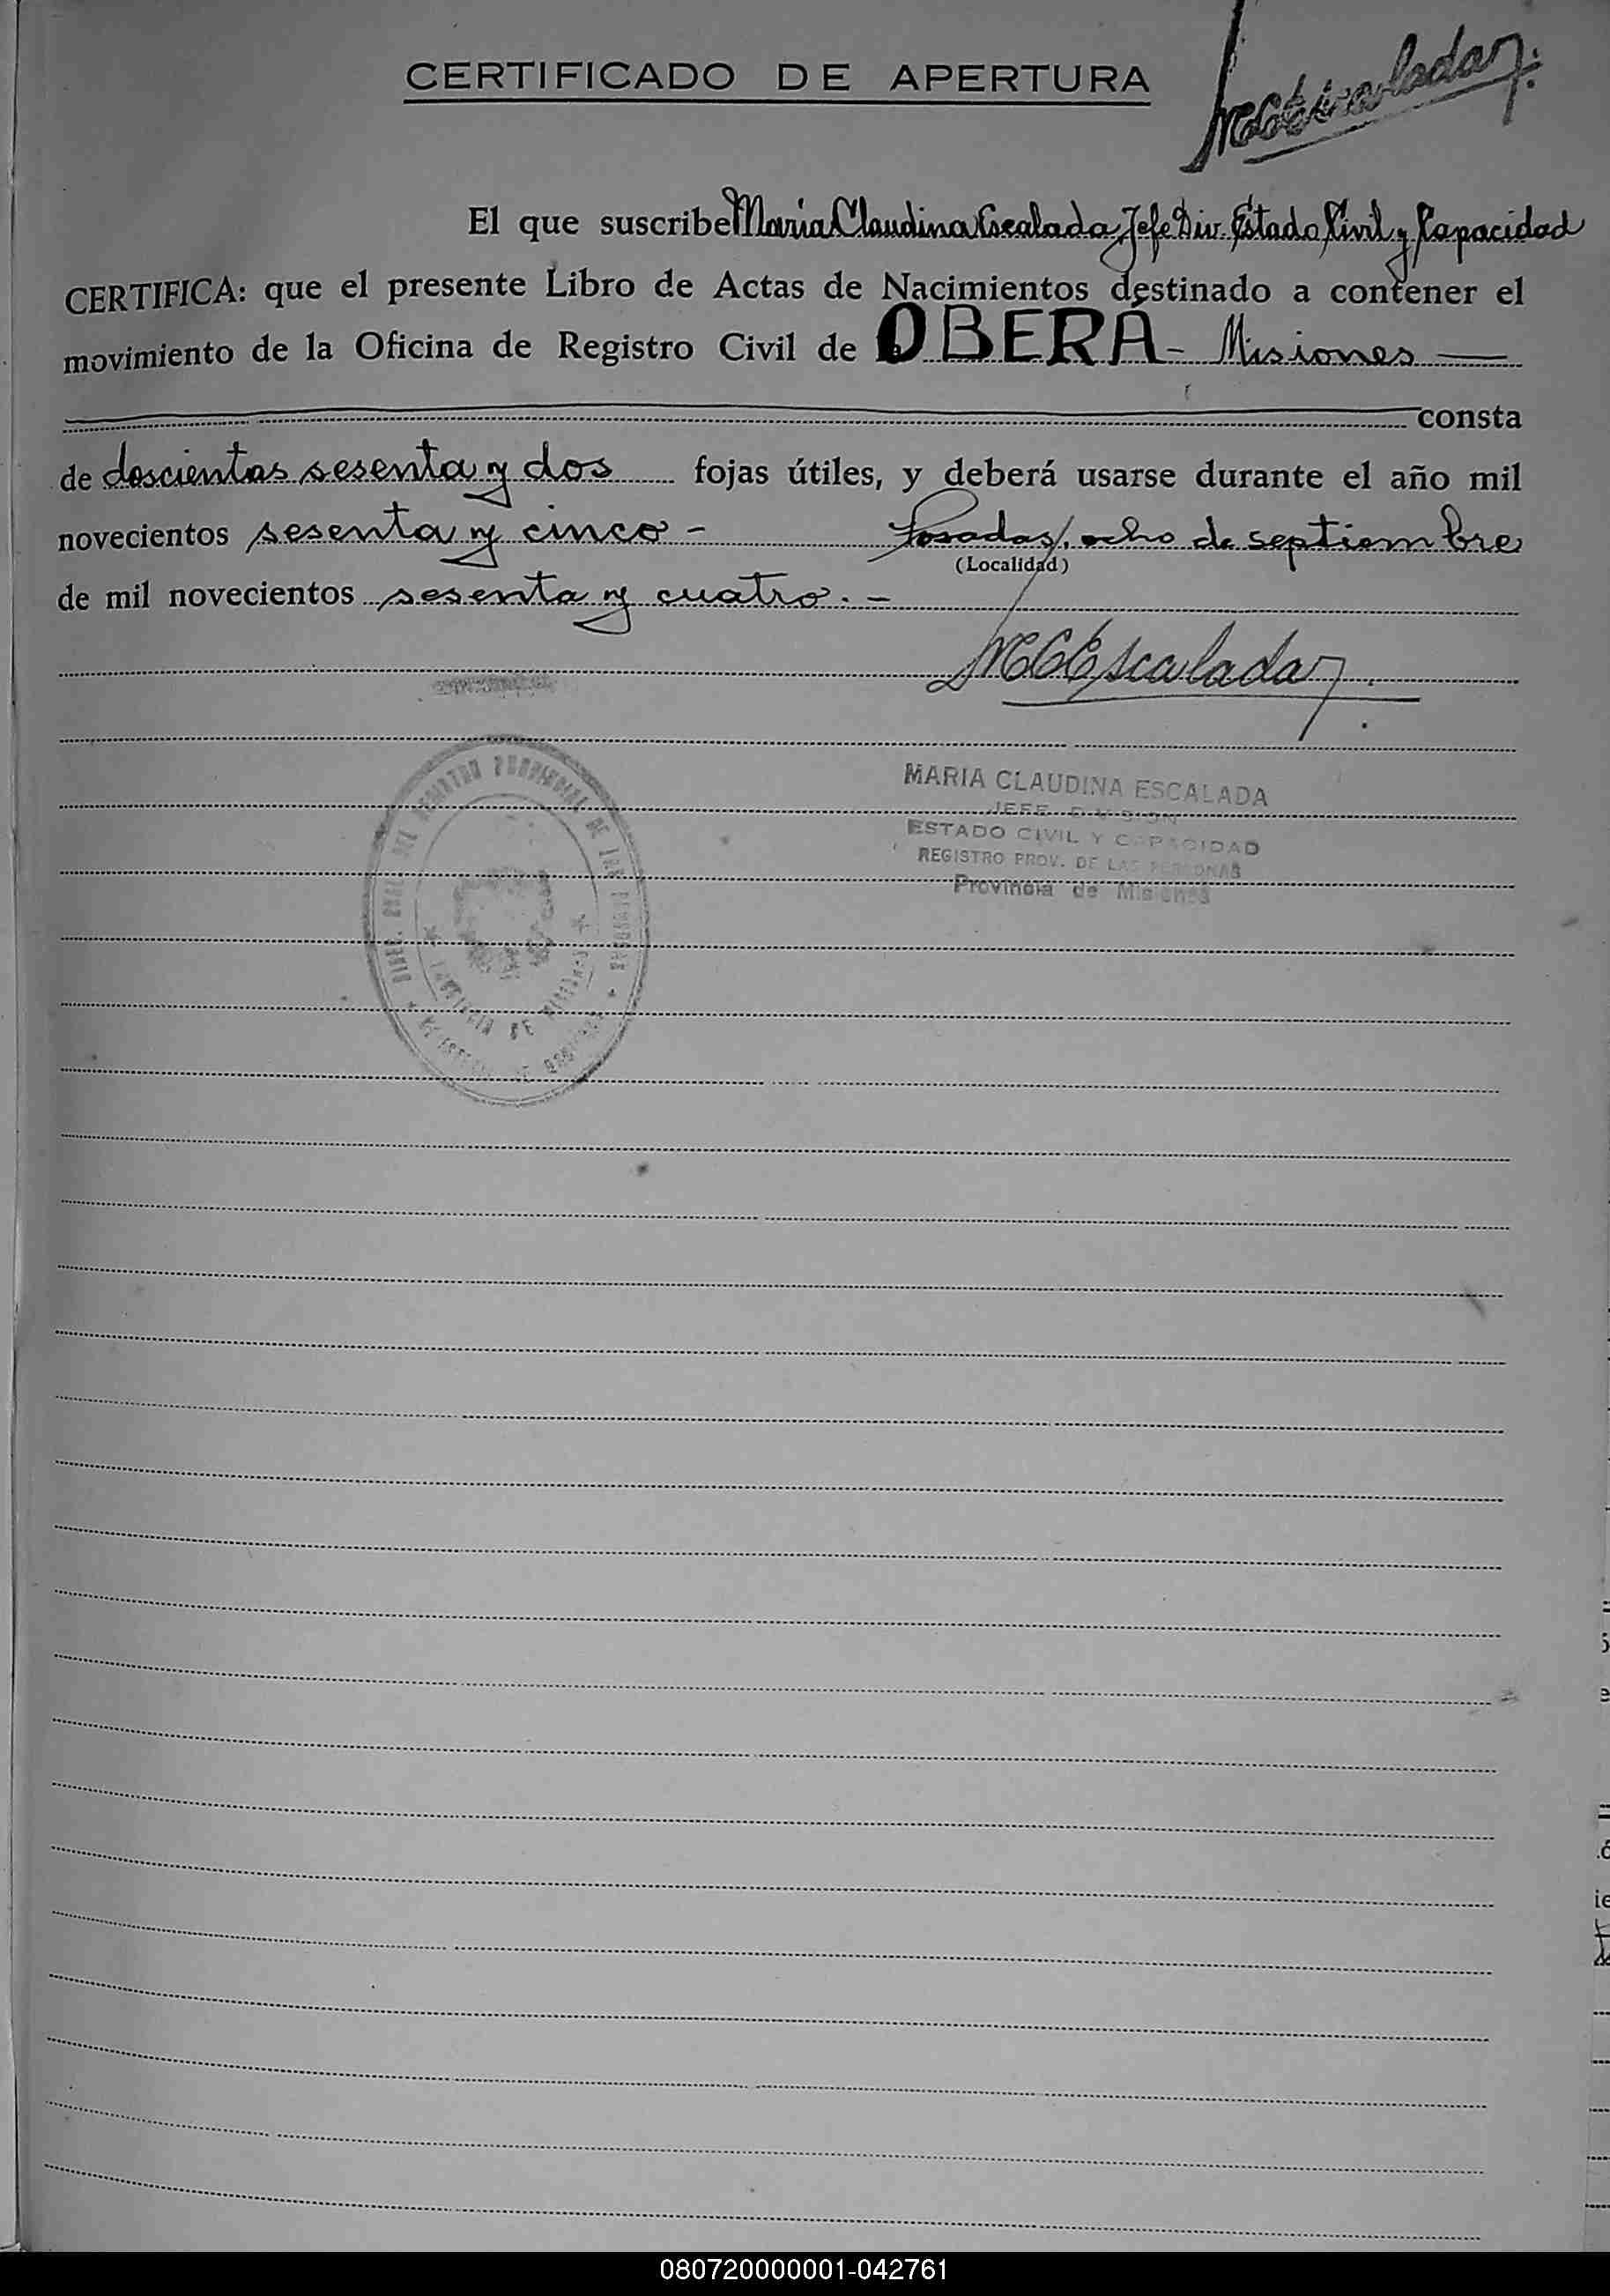 CERTIFICADO DE APERTURA
MCEscalada
El que suscribe Maria Claudina Escalada, Jefe Div. Estado Civil y Capacidad
CERTIFICA: que el presente Libro de Actas de Nacimientos destinado a contener el
movimiento de la Oficina de Registro Civil de OBERÁ - Misiones
consta
de doscientas sesenta y dos fojas útiles, y deberá usarse durante el año mil
novecientos sesenta y cinco - Posadas, ocho de septiembre
(Localidad)
de mil novecientos sesenta y cuatro. -
MCEscalada
MARIA CLAUDINA ESCALADA
JEFE DIVISION
ESTADO CIVIL Y CAPACIDAD
REGISTRO PROV. DE LAS PERSONAS
Provincia de Misiones
DIREC. GRAL. DEL REGISTRO PROVINCIAL DE LAS PERSONAS
PROVINCIA DE MISIONES
080720000001-042761